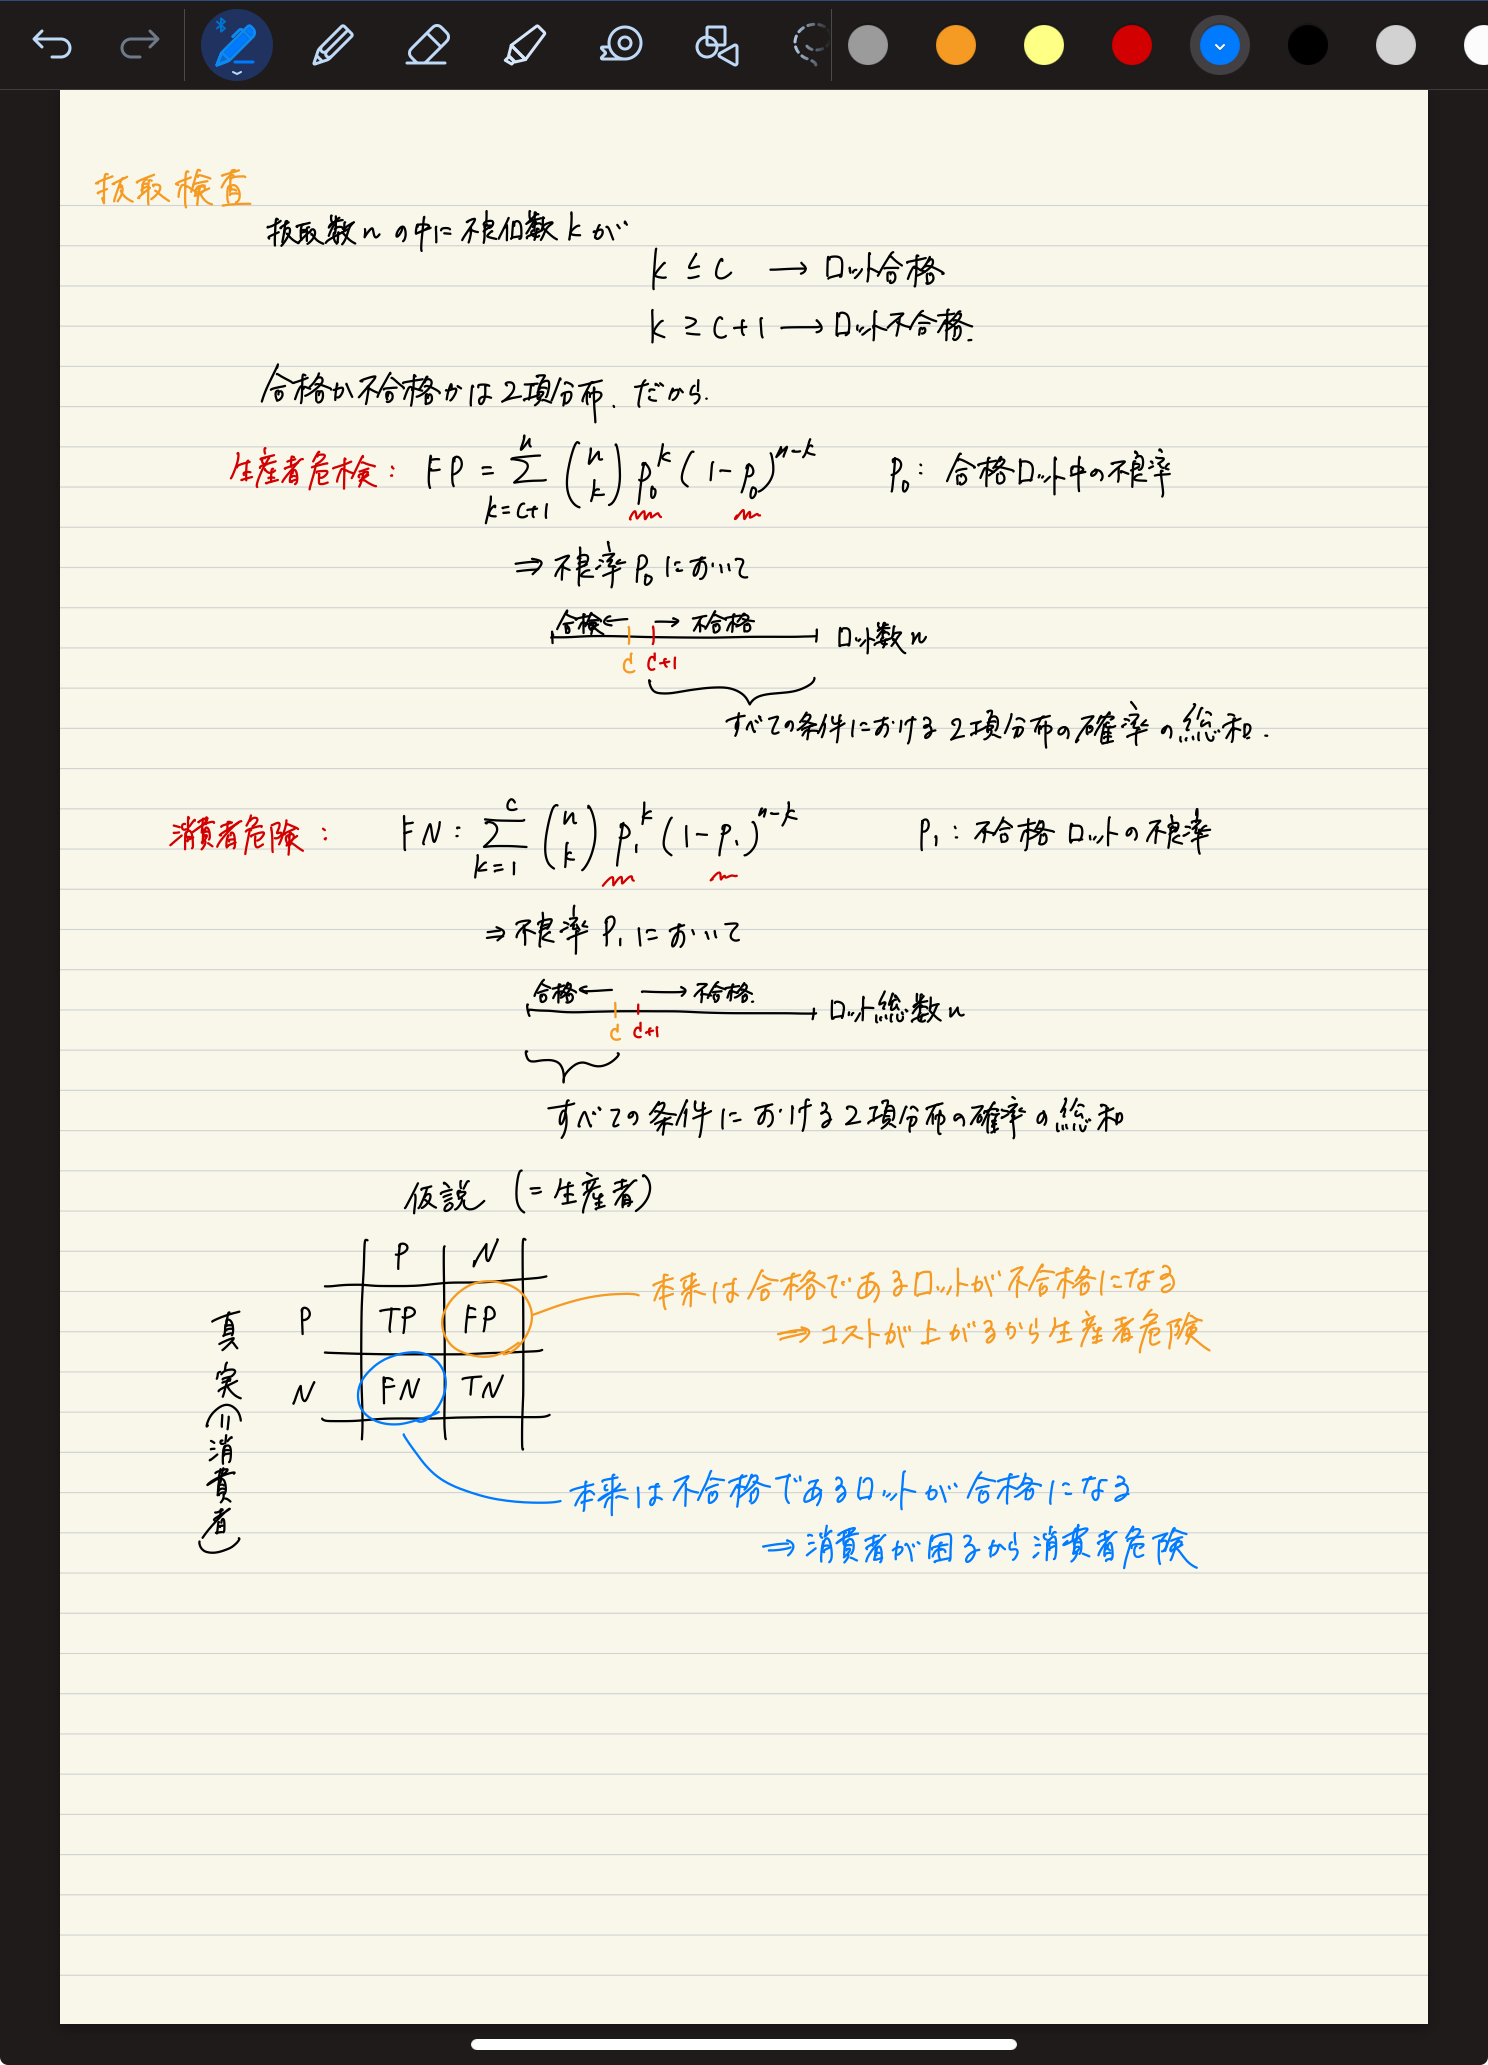 抜取検査
抜取数nの中に不良個数kが
k ≦ c → ロット合格
k ≧ c+1 → ロット不合格.
合格か不合格かは2項分布、だから.
生産者危検: FP = Σ_{k=c+1}^{n} (n k) p₀^k (1-p₀)^{n-k} p₀: 合格ロット中の不良率
⇒ 不良率p₀において
合検← →不合格 ロット数n
c c+1
すべての条件における2項分布の確率の総和.
消費者危険: FN: Σ_{k=1}^{c} (n k) p₁^k (1-p₁)^{n-k} p₁: 不合格ロットの不良率
⇒ 不良率P₁において
合格← →不合格. ロット総数n
c c+1
すべての条件における2項分布の確率の総和
仮説 (=生産者)
P N
P TP FP
N FN TN
真実(=消費者)
本来は合格であるロットが不合格になる
⇒ コストが上がるから生産者危険
本来は不合格であるロットが合格になる
⇒ 消費者が困るから消費者危険